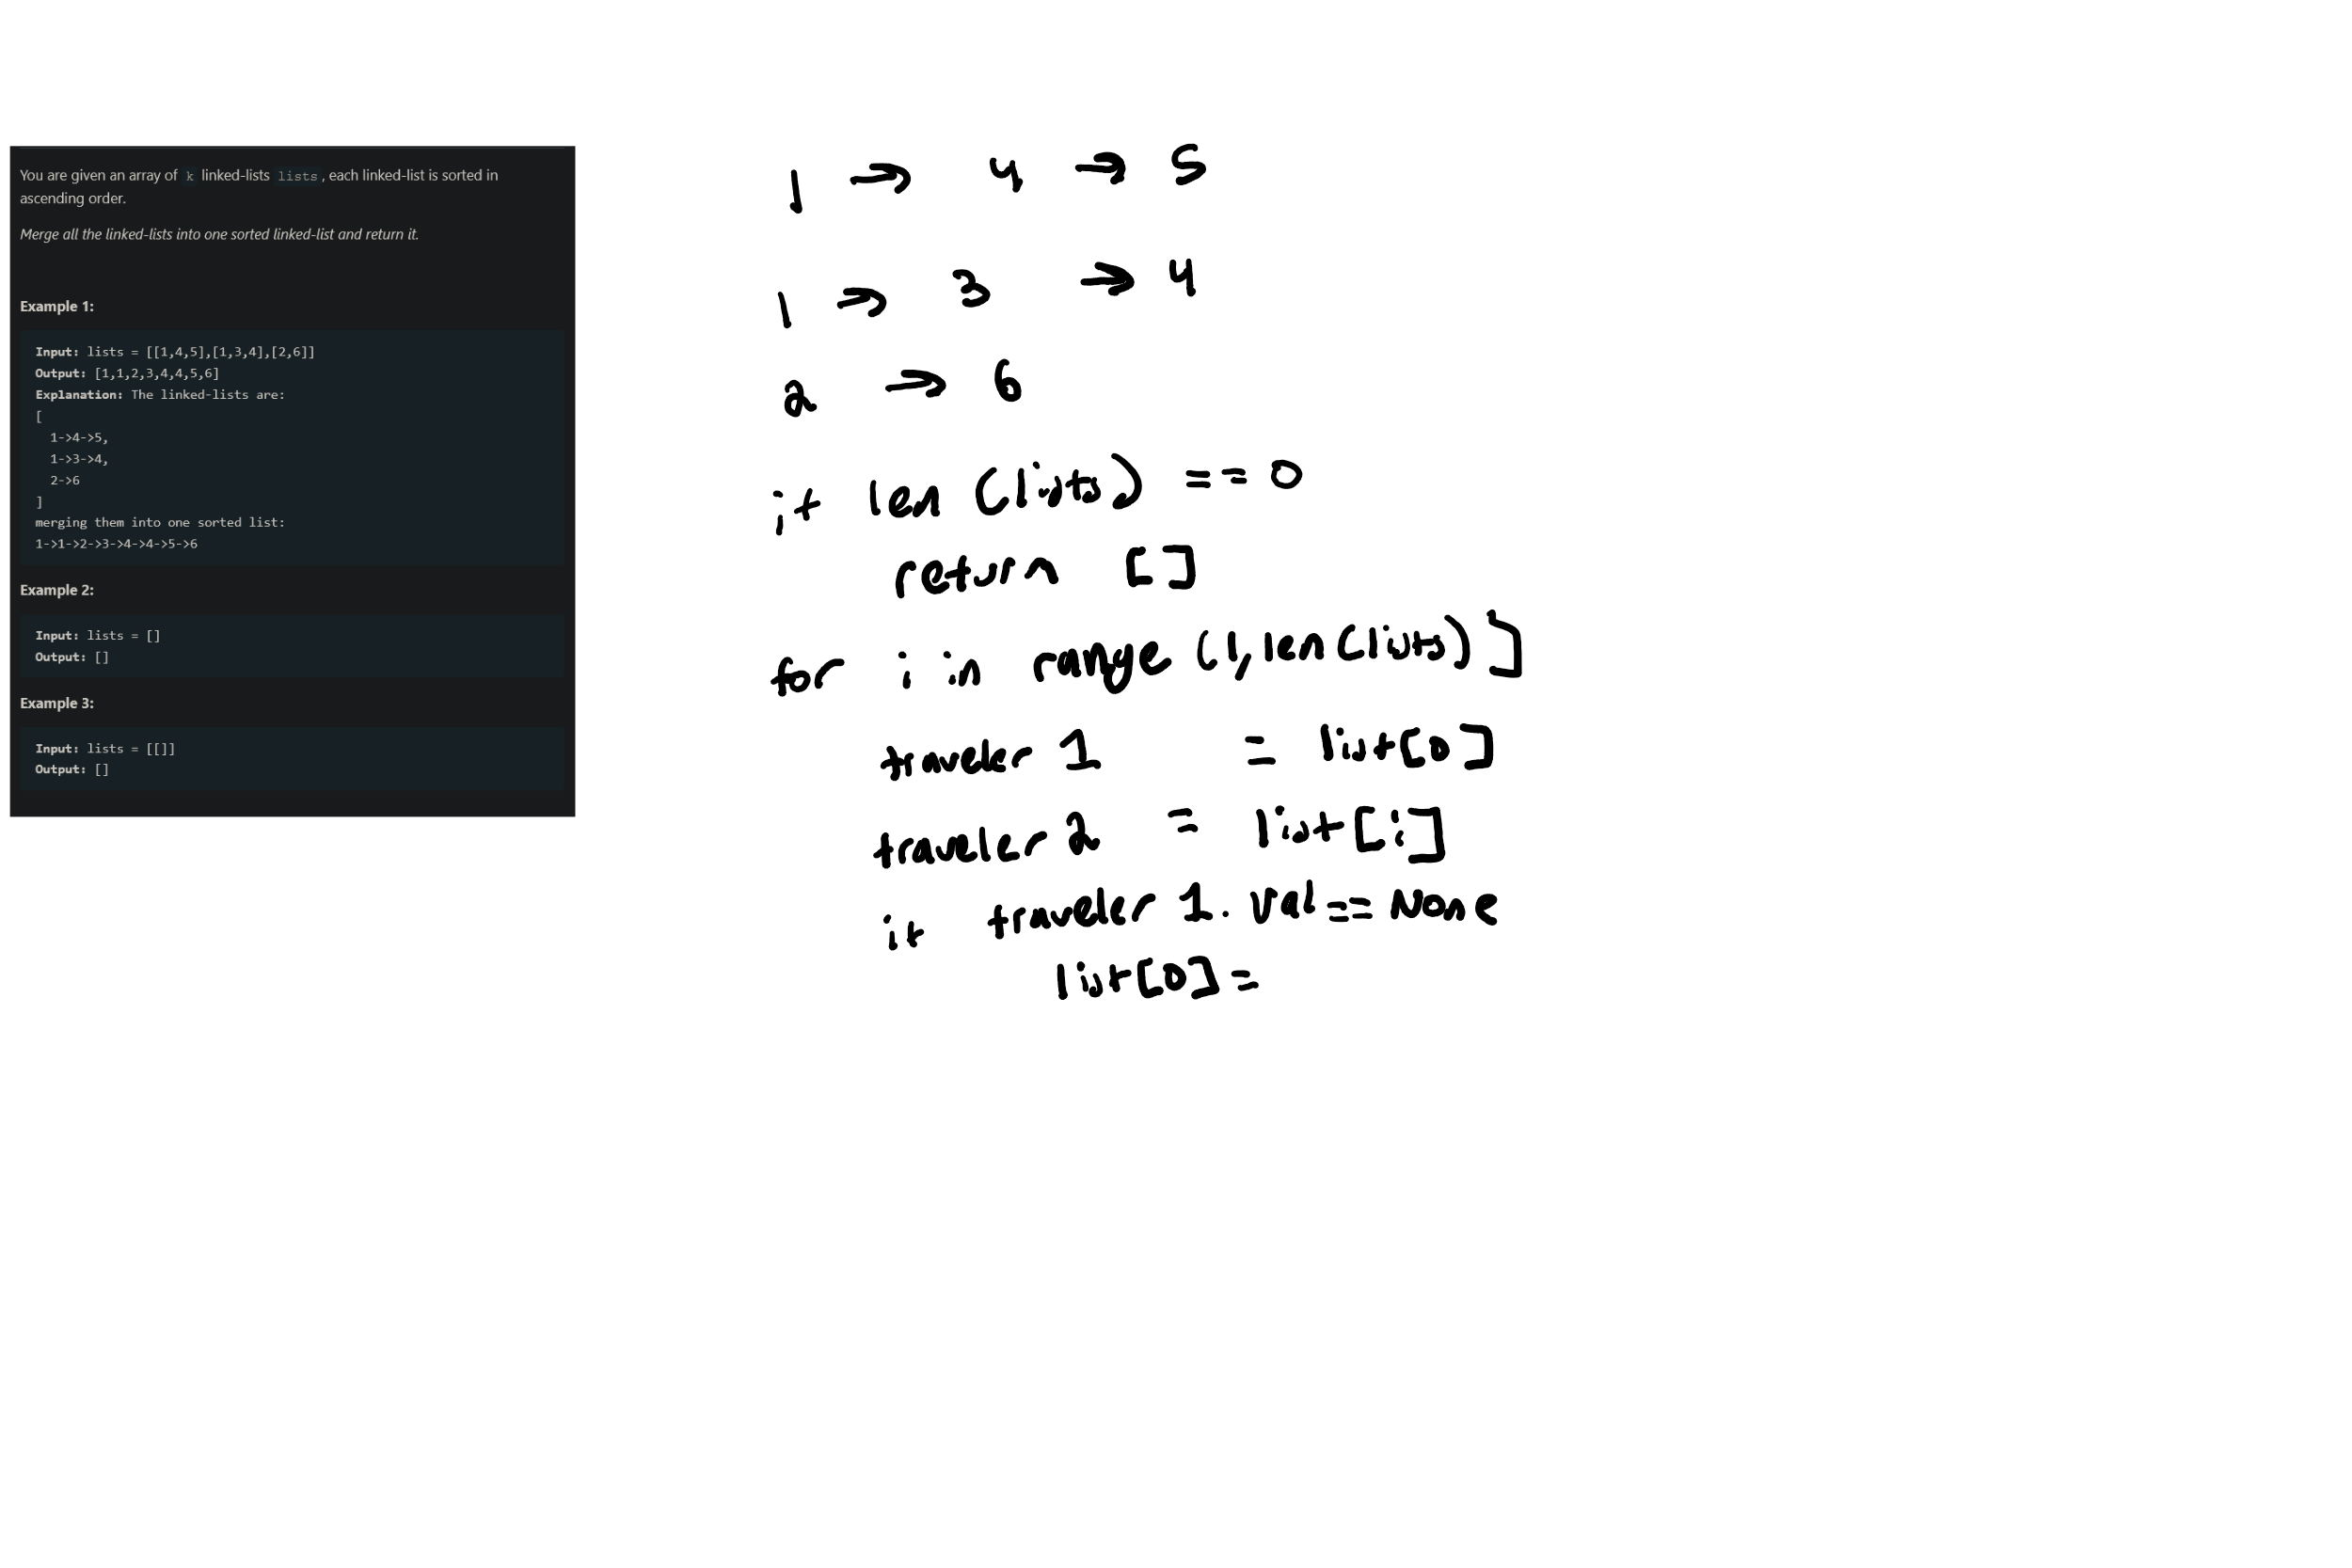 You are given an array of k linked-lists lists, each linked-list is sorted in
ascending order.
Merge all the linked-lists into one sorted linked-list and return it.
Example 1:
Input: lists = [[1,4,5],[1,3,4],[2,6]]
Output: [1,1,2,3,4,4,5,6]
Explanation: The linked-lists are:
[
1->4->5,
1->3->4,
2->6
]
merging them into one sorted list:
1->1->2->3->4->4->5->6
Example 2:
Input: lists = []
Output: []
Example 3:
Input: lists = [[]]
Output: []
1 → 4 → 5
1 → 3 → 4
2 → 6
if len (lists) == 0
return []
for i in range (1, len(lists)]
traveler 1 = list[0]
traveler 2 = list[i]
if traveler 1. val == None
list[0] =